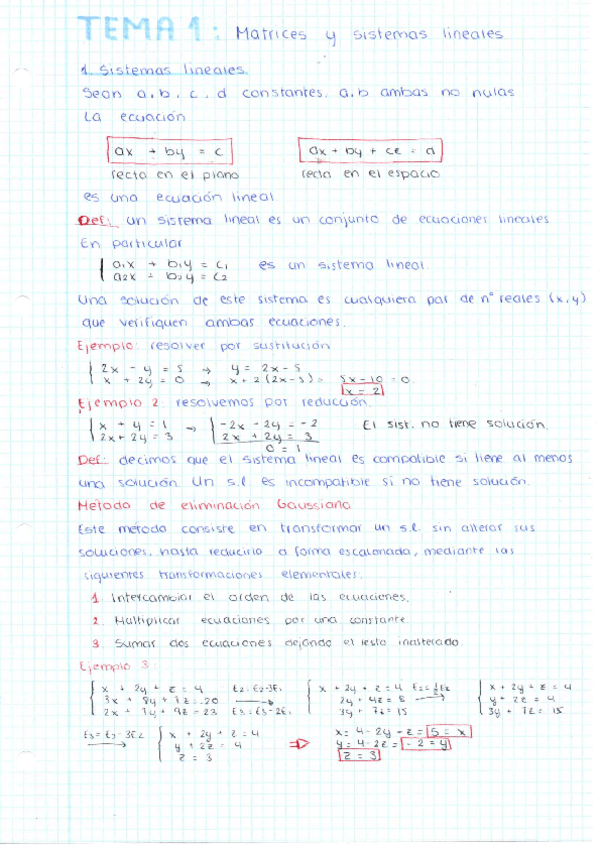 TEMA 1: Matrices y sistemas lineales
1. Sistemas lineales.
Sean a, b, c, d constantes, a, b ambas no nulas
La ecuación
ax + by = c    ax + by + cz = d
recta en el plano    recta en el espacio
es una ecuación lineal
Def: un sistema lineal es un conjunto de ecuaciones lineales
En particular
a1x + b1y = c1    es un sistema lineal.
a2x + b2y = c2
Una solución de este sistema es cualquiera par de nº reales (x, y)
que verifiquen ambas ecuaciones.
Ejemplo: resolver por sustitución
2x - y = 5 → y = 2x - 5
x + 2y = 0 → x + 2(2x-5) = 5x-10 = 0
x = 2
Ejemplo 2: resolvemos por reducción.
x + y = 1 → -2x - 2y = -2    El sist. no tiene solución.
2x + 2y = 3    2x + 2y = 3
0 = 1
Def: decimos que el sistema lineal es compatible si tiene al menos
una solución. Un s.l. es incompatible si no tiene solución.
Método de eliminación Gaussiana
Este método consiste en transformar un s.l. sin alterar sus
soluciones, hasta reducirlo a forma escalonada, mediante las
siguientes transformaciones elementales:
1. Intercambiar el orden de las ecuaciones.
2. Multiplicar ecuaciones por una constante.
3. Sumar dos ecuaciones dejando el resto inalterado.
Ejemplo 3:
x + 2y + z = 4    E2=E2-3E1    x + 2y + z = 4    E2=½E2    x + 2y + z = 4
3x + 8y + 7z = 20    →    2y + 4z = 8    →    y + 2z = 4
2x + 7y + 9z = 23    E3=E3-2E1    3y + 7z = 15    3y + 7z = 15
E3=E3-3E2    x + 2y + z = 4    x = 4-2y-z = 5 = x
→    y + 2z = 4    ⇒    y = 4-2z = -2 = y
z = 3    z = 3